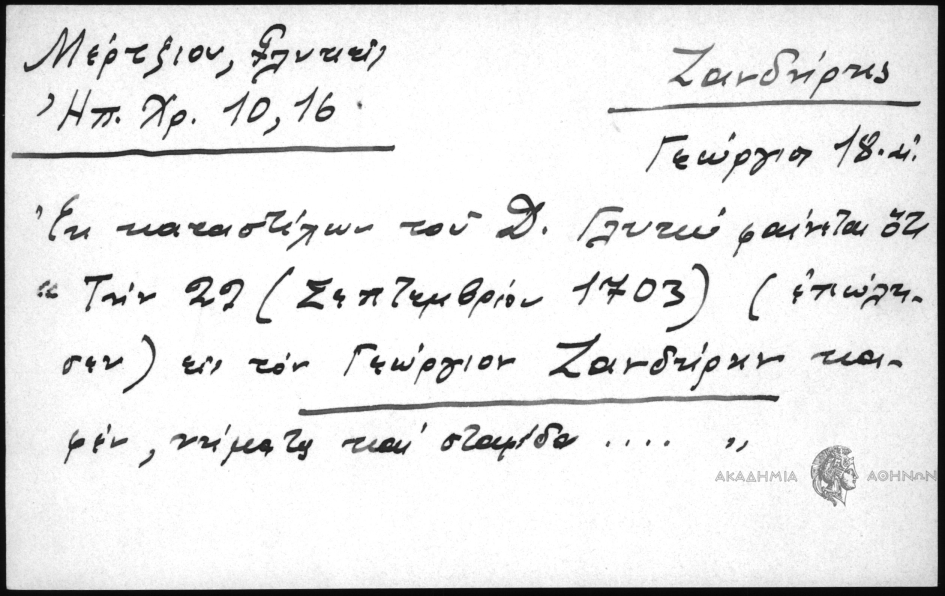 Μέρτζιου, Γλυκεῖς
Ἠπ. Χρ. 10, 16
Ζανδήρης
Γεώργιος 18. αἰ.
Ἐκ καταστίχων τοῦ Δ. Γλυκύ φαίνεται ὅτι
" Τὴν 22 (Σεπτεμβρίου 1703) (ἐπώλη-
σεν) εἰς τόν Γεώργιον Ζανδήρην κα-
φέν, νήματα καί σταμίδα .... "
ΑΚΑΔΗΜΙΑ ΑΘΗΝΩΝ